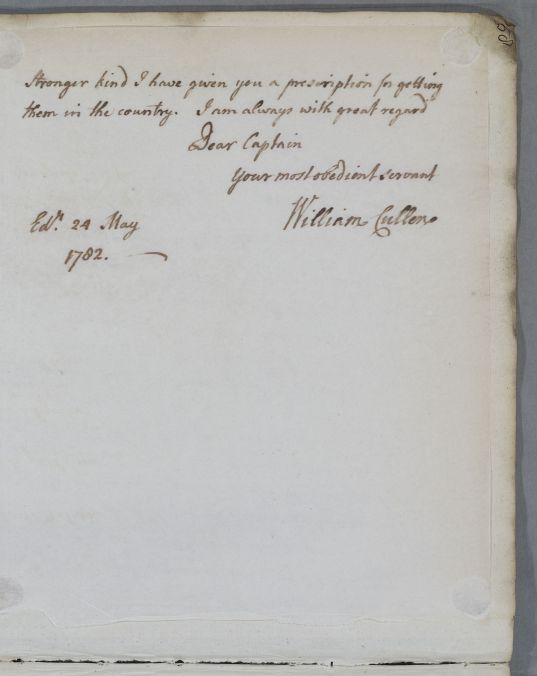 stronger kind I have given you a prescription for getting
them in the country. I am always with great regard
Dear Captain
Your most obedient servant
William Cullen
Edr. 24 May
1782.